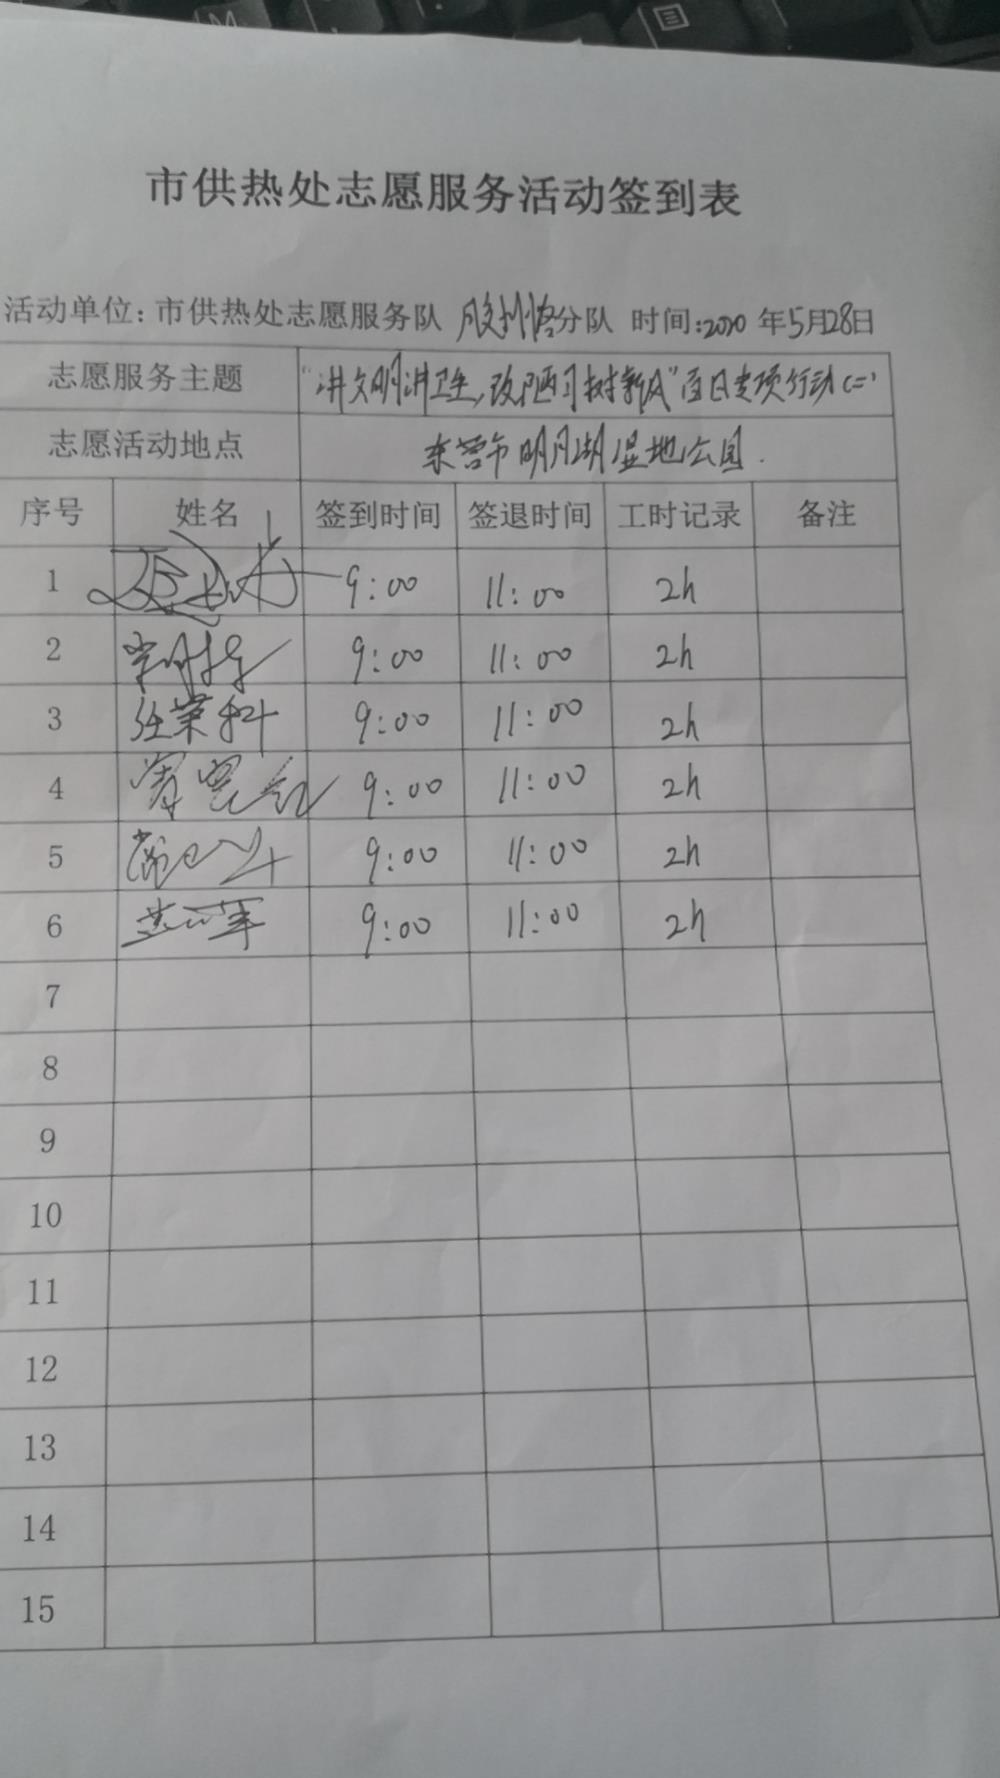 市供热处志愿服务活动签到表
活动单位:市供热处志愿服务队 胶州路分队 时间:2020年5月28日
志愿服务主题 “讲文明讲卫生,改陋习树新风”百日专项行动(二)
志愿活动地点 东营市明月湖湿地公园.
序号 姓名 签到时间 签退时间 工时记录 备注
1 9:00 11:00 2h
2 9:00 11:00 2h
3 任荣科 9:00 11:00 2h
4 9:00 11:00 2h
5 9:00 11:00 2h
6 9:00 11:00 2h
7
8
9
10
11
12
13
14
15